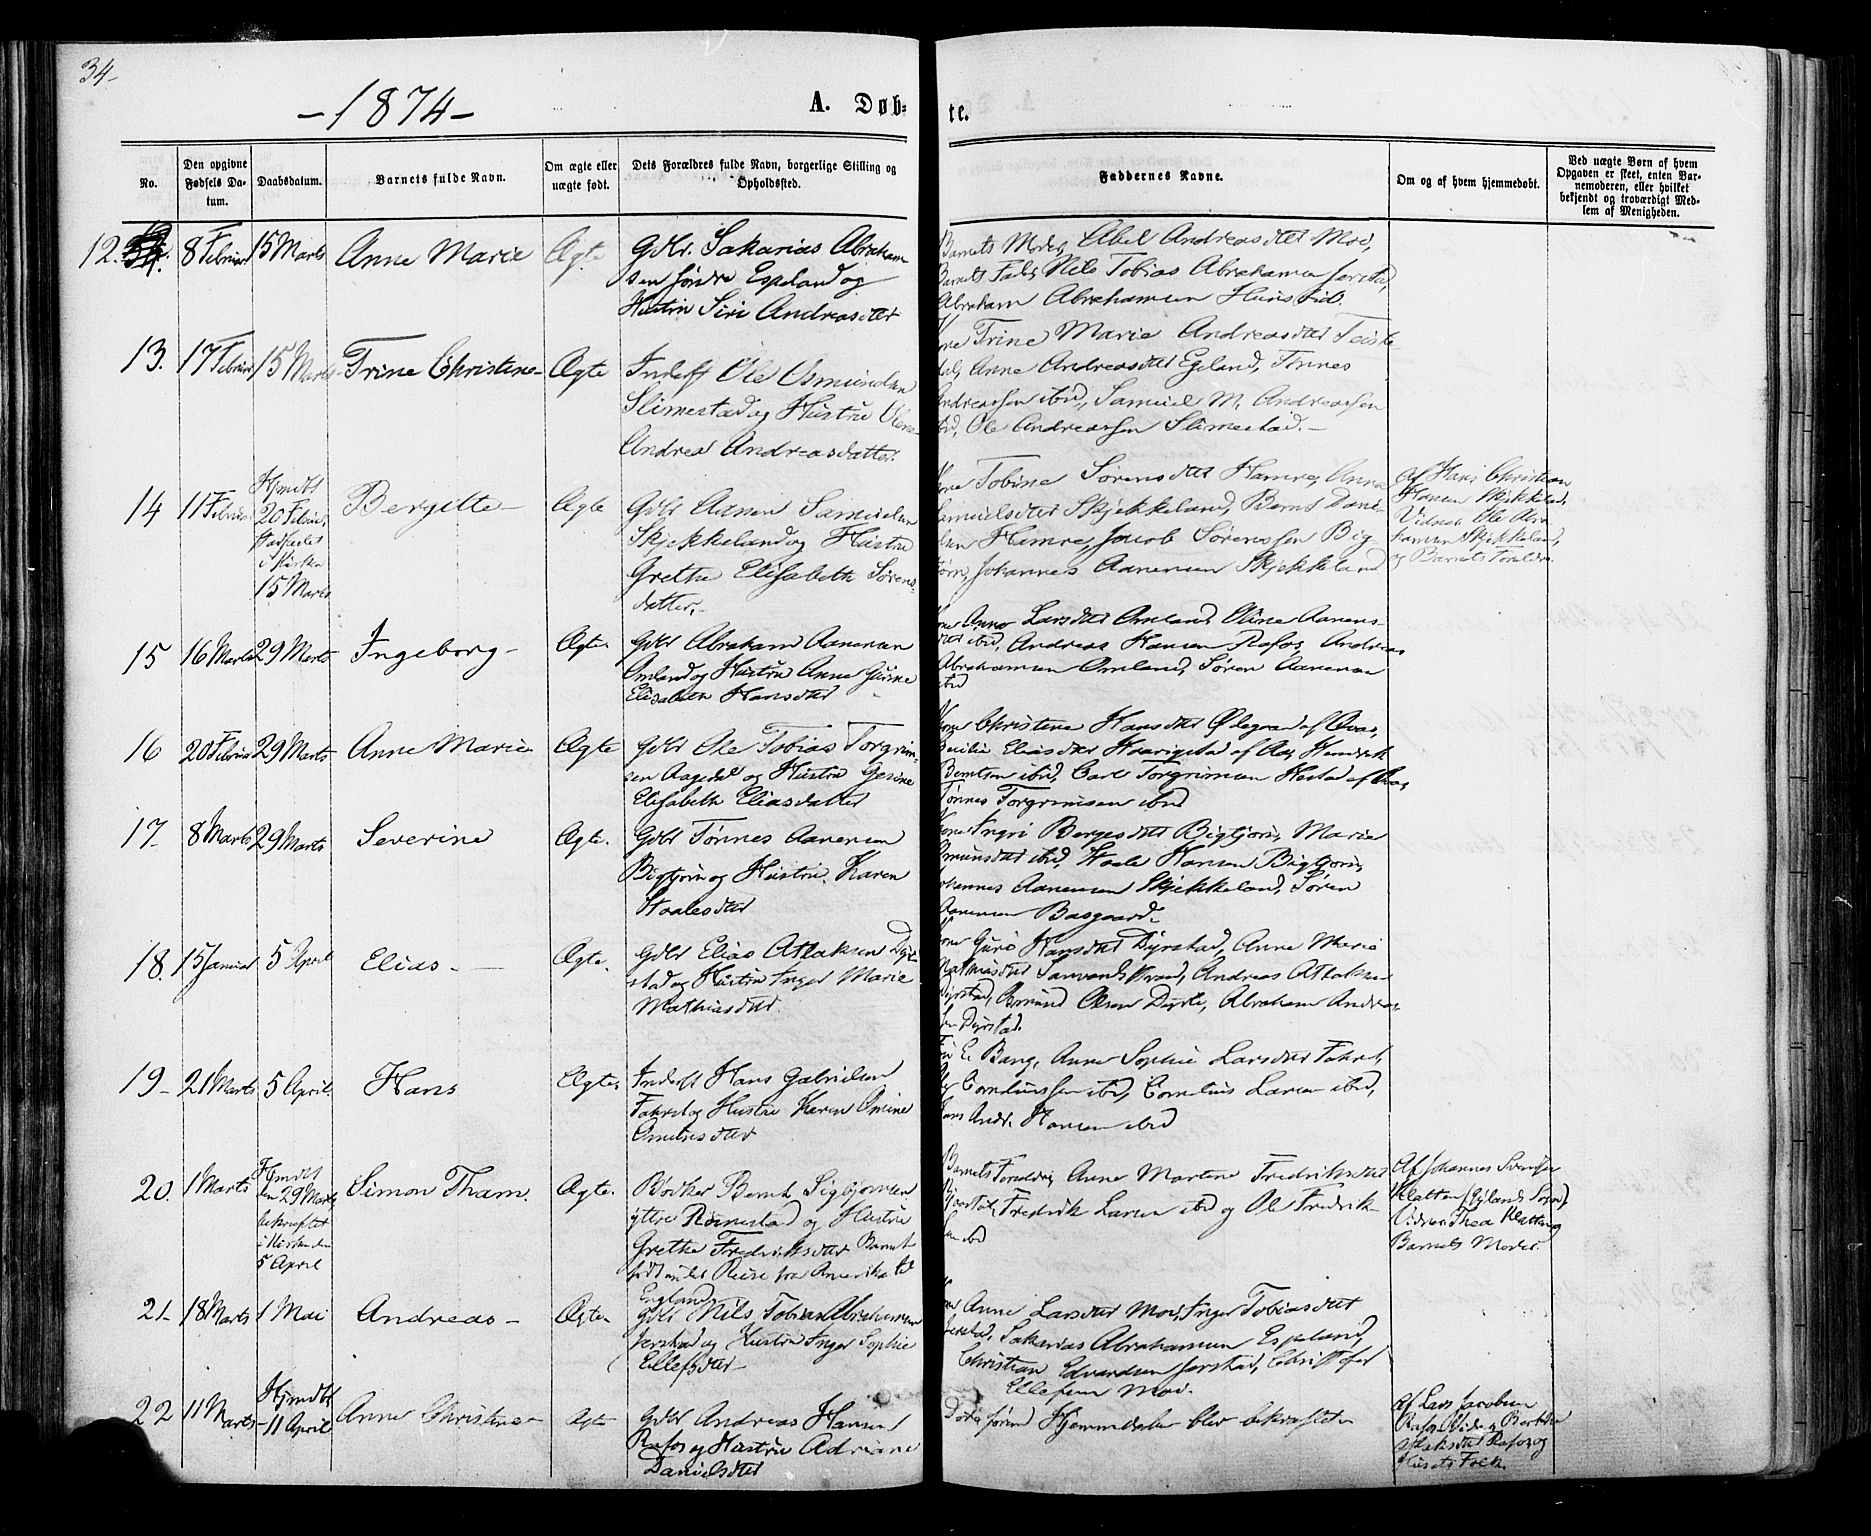 34-
-1874-
A. Døb-
te.
No.
Den opgivne Fødsels Datum.
Daabsdatum.
Barnets fulde Navn.
Om ægte eller uægte født.
Dets Forældres fulde Navn, borgerlige Stilling og Opholdssted.
Faddernes Navne.
Om og af hvem hjemmedøbt.
Ved uægte Børn af hvem Opgaven er skeet, enten Barnemoderen, eller hvilket bekjendt og troværdigt Medlem af Menigheden.
12. 8 Februar 15 Marts Anne Marie Ægte
Gdbr. Sakarias Abraham
sen søndre Espeland og
Hustru Siri Andreasdtter
Barnets Moder, Abel Andreasdtter Moi,
Barnets Fader, Nils Tobias Abrahamsen Jerstad,
Abraham Abrahamsen
13. 17 Februar 15 Marts Trine Christine- Ægte
Inderst Ole Osmundsen
Slimestad og Hustru Olene
Andrea Andreasdatter.
Trine Marie Andreasdtter
Anne Andreasdtter Egeland, Tønnes
Andreassen ibid, Samuel M. Andreassen
ibid, Ole Andreassen Slimestad.-
14 11 Februar Hjmdbt 20 Februar
i Kirken
15 Marts
Bergitte- Ægte
Gdbr Aanen Samuelsen
Skjekkeland og Hustru
Grethe Elisabeth Sørens-
datter.-
Tobine Sørensdtter Hamre, Anna
Samuelsdtter Skjekkeland, Bernt Dani-
elsen Hamre, Jacob Sørenssen Big-
tjørn, Johannes Aanensen Skjekkeland
Af Hans Christian
Hansen Skjekkeland,
Vidner Ole Abra
hamsen Skjekkeland,
og Barnets Forældre.
15 16 Marts 29 Marts Ingeborg- Ægte.
Gdbr Abraham Aanensen
Omland og Hustru Anne Gurine
Elisabeth Hansdtter
Anne Larsdtter Omland, Oline Aanens-
dtter ibid, Andreas Hansen Rafos, Andreas
Abrahamsen Omland, Søren Aanensen
ibid
16 20 Februar 29 Marts Anne Marie Ægte
Gdbr Ole Tobias Torgrim-
sen Aagedal og Hustru Gesine
Elisabeth Eliasdatter
Christine Hansdtter Ødegaard af Qvas,
Eliasdtter af Aas, Hendrik
Berntsen ibid, Carl Torgrimsen
Tønnes Torgrimsen ibid
17- 8 Marts 29 Marts Severine Ægte.
Gdbr Tønnes Aanensen
Bigtjørn og Hustru Karen
Staalesdtter
Kone Ingri Bergesdtter Bigtjørn, Marie
ibid, Staale Hansen Bigtjørn,
Johannes Aanensen Skjekkeland, Søren
Aanensen Basgaard.
18. 15 Januar 5 April Elias.- Ægte.
Gdbr Elias Atlaksen Dyr-
stad og Hustru Inger Marie
Mathiasdtter.
Guro Hansdtter Dyrstad, Anne Marie
Mathiasdtter Andreas Atlaksen
Dyrstad, Olsen Abraham Andreas-
sen Dyrstad.
19- 21 Marts 5 April. Hans Ægte.
Inderst Hans Gabrielsen
og Hustru Karen Omine
E. Bang, Anne Sophie Larsdtter
Corneliussen ibid, Cornelius Larsen ibid,
Hans Andr. Hansen ibid
20. 1 Marts Hjmdbt
den 29 Marts
bekræftet
i Kirken den
5 April
Simon Tham. Ægte.
Bødker Bernt Sigbjørnsen
yttre Rørnestad og Hustru
Grethe Fredriksdtter Barnet
født under Reise fra Amerika til
England
Barnets Forældre, Anne Martene Fredriksdtter
Fredrik Larsen ibid og Ole Fredrik-
sen ibid
Af Johannes Svendsen
Klatten (Gylands Sogn)
Vidner Thea Klatten og
Barnets Moder.
21- 18 Marts 1 Mai Andreas- Ægte-
Gdbr Nils Tobias Abrahamsen
Jerstad og Hustru Inger Sophie
Ellefsdtter
Anne Larsdtter Moi, Inger Tobiasdtter
Jerstad, Sakarias Abrahamsen Espeland,
Christian Edvardsen Jerstad, Christofer
Ellefsen Moi.
22 11 Marts Hjmdbt
-11 April
Anne Christine- Ægte
Gdbr Andreas Hansen
Rafos og Hustru Adriane
Danielsdtter
Døde førend Hjemmedaaben blev bekræftet
Af Lars Jacobsen
Rafos
Rafos og
Husets Folk.